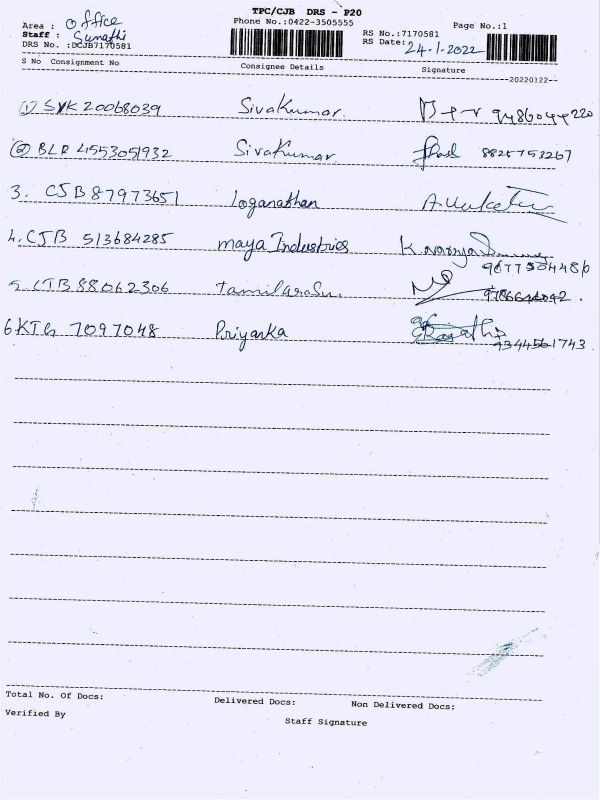 TPC/CJB DRS - P20
Area : Office Phone No.:0422-3505555 Page No.:1
Staff : Sumathi RS No.:7170581
DRS No. :DCJB7170581 RS Date: 24-1-2022
S No Consignment No Consignee Details Signature
20220122--
(1) SVK 20068039 Sivakumar.
(2) BLR 4553051932 Sivakumar 8825753267
3. CJB 87973651 Loganathan
4. CJB 513684285 Maya Industries
5. CJB 88062306 Tamilarasu.
6 KTG 7097048 Priyanka 9344561743
Total No. Of Docs: Delivered Docs: Non Delivered Docs:
Verified By Staff Signature